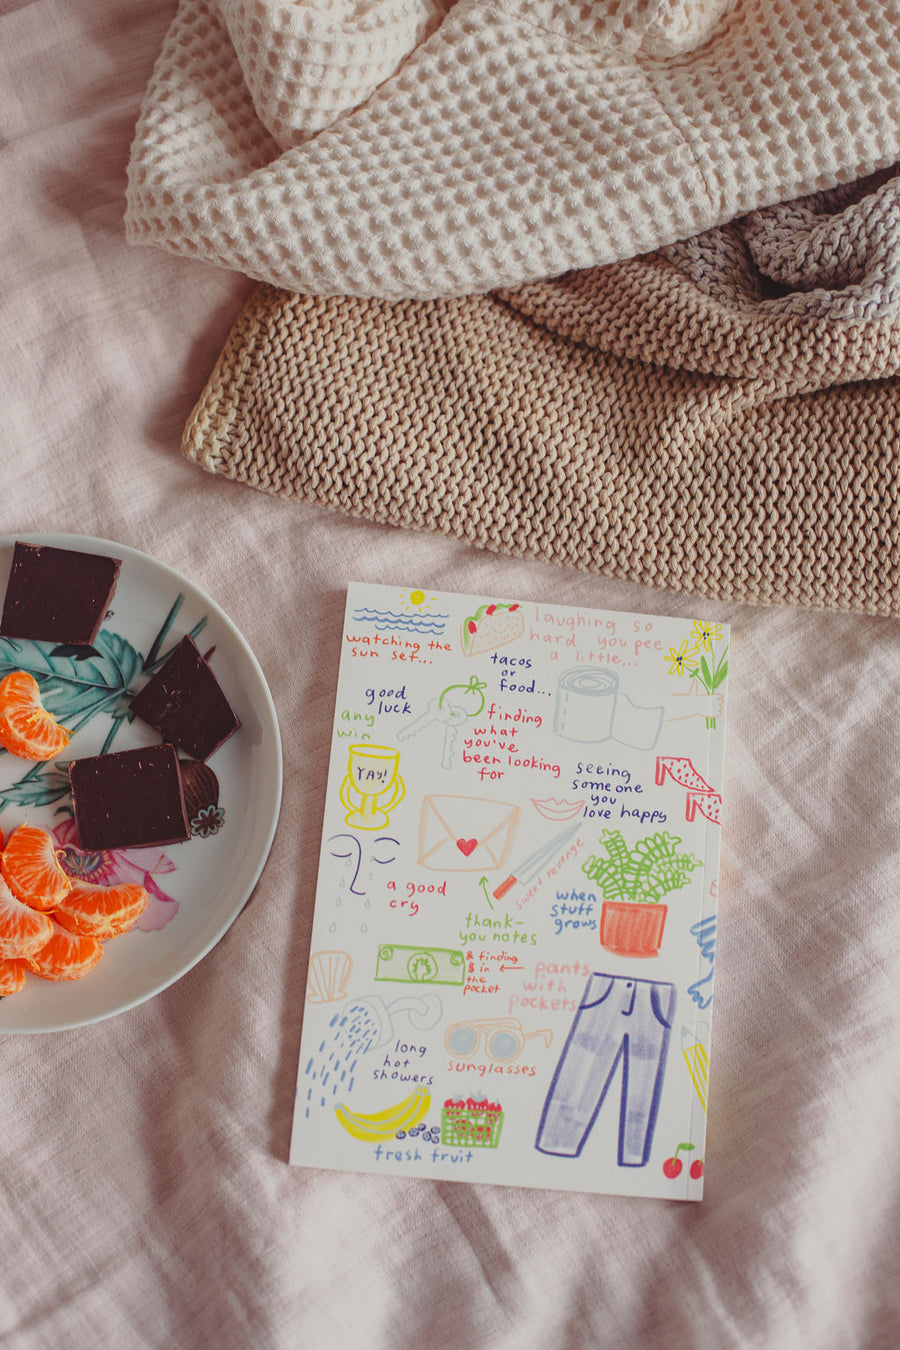 watching the
sun set...
laughing so
hard you pee
a little...
tacos
or
food...
good
luck
any
win
YAY!
finding
what
you've
been looking
for
seeing
someone
you
love happy
sweet revenge
a good
cry
when
stuff
grows
thank-
you notes
5
5
& finding
$ in
the
pocket
pants
with
pockets
long
hot
showers
sunglasses
fresh fruit